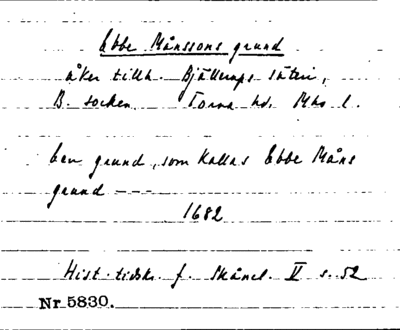 Ebbe Månssons grund
åker tillh. Bjällerups säteri,
B. socken Torna hd. Mhs l.
Een grund, som kallas Ebbe Måns
grund ---
1682
Hist. tidskr. f. Skånel. V s. 52
Nr 5830.